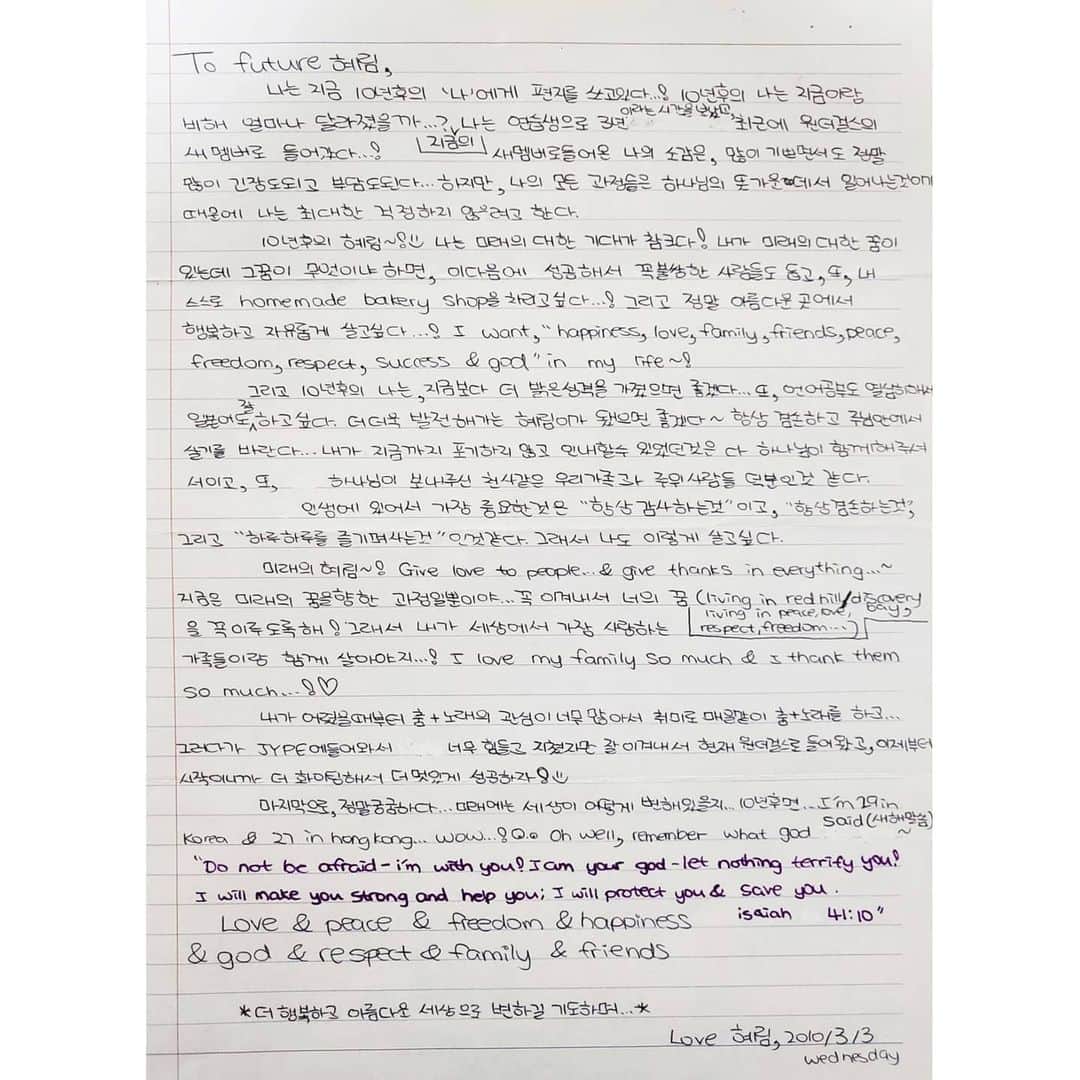 To future 혜림,
나는 지금 10년후의 '나'에게 편지를 쓰고있다...! 10년후의 나는 지금이랑
비해 얼마나 달라졌을까...? 나는 연습생으로 3년이라는 시간을 보냈고, 최근에 원더걸스의
새멤버로 들어갔다...! 지금의 새멤버로들어온 나의 소감은, 많이 기쁘면서도 정말
많이 긴장도되고 부담도된다... 하지만, 나의 모든 과정들은 하나님의 뜻가운데서 일어나는것이기
때문에 나는 최대한 걱정하지 않으려고 한다.
10년후의 혜림~! 나는 미래의 대한 기대가 참크다! 내가 미래의 대한 꿈이
있는데 그꿈이 무엇이냐 하면, 이다음에 성공해서 꼭불쌍한 사람들도 돕고, 또, 내
스스로 homemade bakery shop을 차리고싶다...! 그리고 정말 아름다운 곳에서
행복하고 자유롭게 살고싶다...! I want, "happiness, love, family, friends, peace,
freedom, respect, success & god" in my life~!
그리고 10년후의 나는, 지금보다 더 밝은성격을 가졌으면 좋겠다... 또, 언어공부도 열심히해서
일본어도 잘 하고싶다. 더더욱 발전해가는 혜림이가 됐으면 좋겠다~ 항상 겸손하고 주님안에서
살기를 바란다... 내가 지금까지 포기하지 않고 인내할수 있었던것은 다 하나님이 함께해주셔
서이고, 또, 하나님이 보내주신 천사같은 우리가족과 주위사람들 덕분인것 같다.
인생에 있어서 가장 중요한것은 "항상감사하는것"이고, "항상겸손하는것",
그리고 "하루하루를 즐기며사는것"인것같다. 그래서 나도 이렇게 살고싶다.
미래의 혜림~! Give love to people...& give thanks in everything...~
지금은 미래의 꿈을향한 과정일뿐이야... 꼭 이겨내서 너의 꿈 (living in red hill/discovery bay,
living in peace, love,
respect, freedom...)
을 꼭이루도록해! 그래서 내가 세상에서 가장 사랑하는
가족들이랑 함께 살아야지...! I love my family so much & I thank them
so much...!♡
내가 어렸을때부터 춤+노래의 관심이너무 많아서 취미로 매일같이 춤+노래를 하고...
그러다가 JYPE에들어와서 너무 힘들고 지쳤지만 잘 이겨내서 현재 원더걸스로 들어왔고, 이제부터
시작이니까 더 화이팅해서 더 멋있게 성공하자!
마지막으로, 정말궁금하다... 미래에는 세상이 어떻게 변해있을지... 10년후면... I'm 29 in
Korea & 27 in hong kong... wow...! Oh well, remember what god said (새해말씀)
~
"Do not be afraid - i'm with you! I am your god - let nothing terrify you!
I will make you strong and help you; I will protect you & save you.
isaiah 41:10"
Love & peace & freedom & happiness
& god & respect & family & friends
*더 행복하고 아름다운 세상으로 변하길 기도하며...*
Love 혜림, 2010/3/3
wednesday